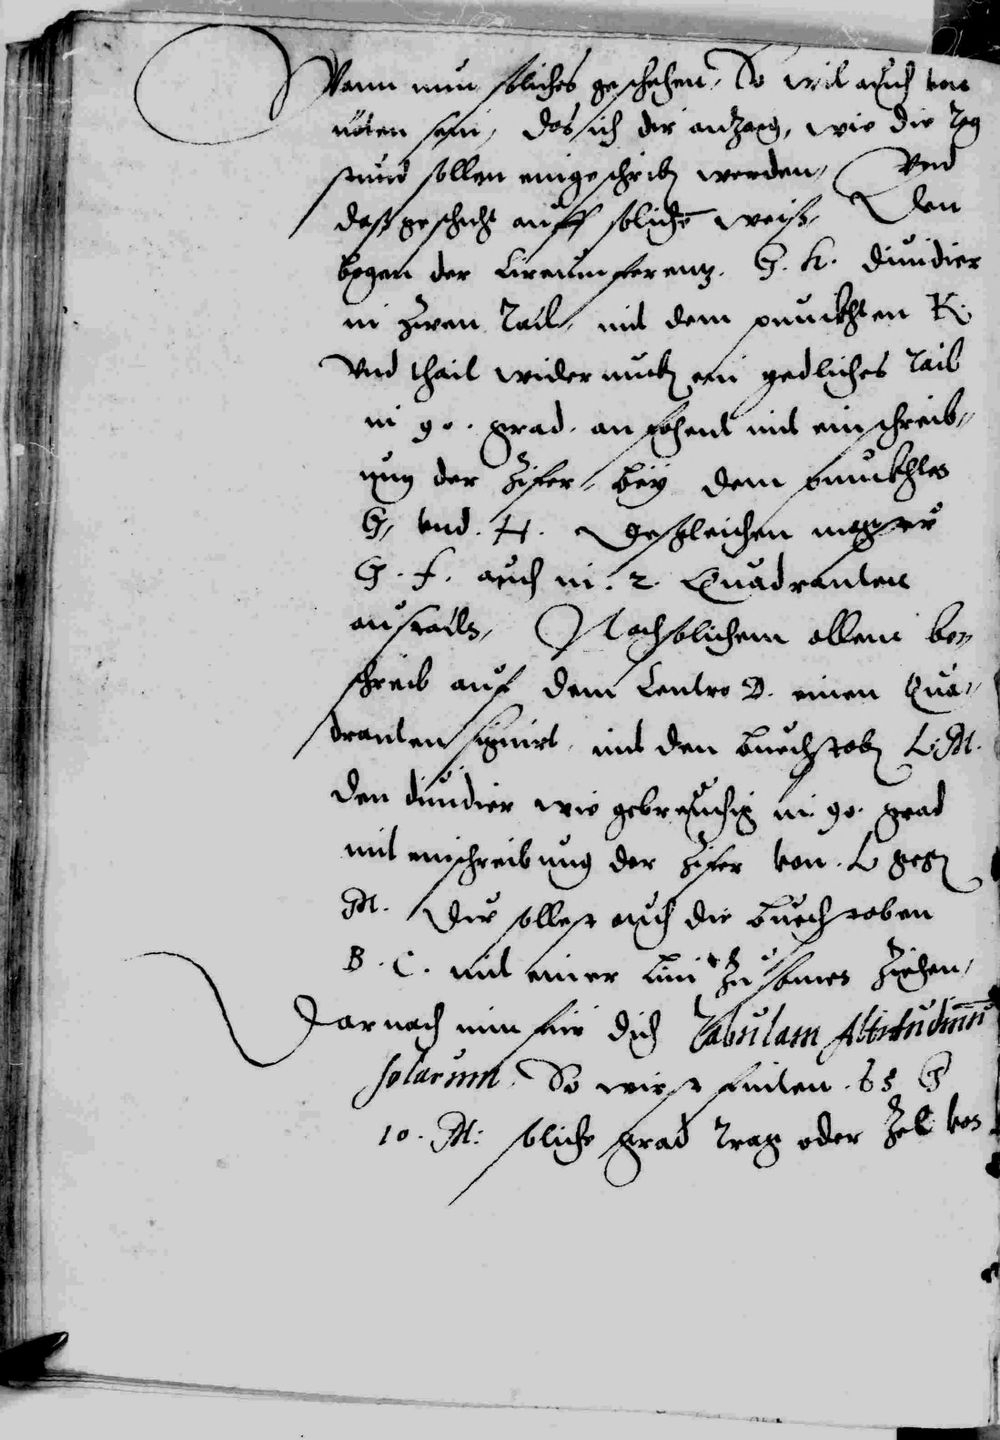 Wann nun soliches geschehen, So wil auch von
nöten sein, das ich dir anzaig, wie die Tag
stund sollen eingeschriben werden, Vnd
das geschicht auff soliche weiß, Den
bogen der Circumferentz. G. H. diuidier
in zwen Tail, mit dem punckhten K.
Vnd thail widerumb ein yedliches Tail
in 90. grad. anfohent mit einschreib-
ung der Zifer, beÿ dem punckhten
G, vnd. H. Desgleichen magstu
G. f. auch in. 2. Quadranten
austailn, Nach solichem allem be-
schreib auß dem Centro D. einen Qua-
dranten signirt, mit den buechstaben L. M.
den diuidier wie gebreuchig in 90. grad
mit einschreibung der Zifer von. L gegen
M. Du sollest auch die buechstoben
B. C. mit einer Lini zu somen Ziehen,
Darnach nim fur dich Tabulam Altitudinum
solarum. So wirst finten. 65 G
10. M: soliche grad Trag oder Zel von